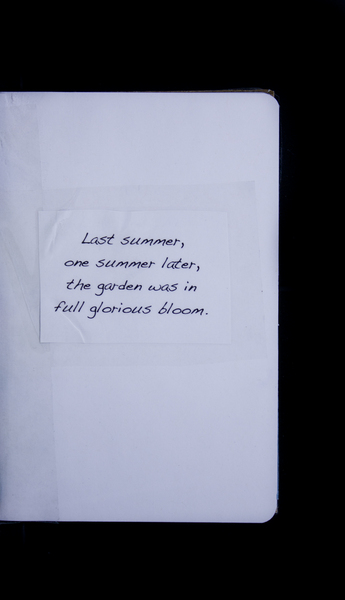 Last summer,
one summer later,
the garden was in
full glorious bloom.